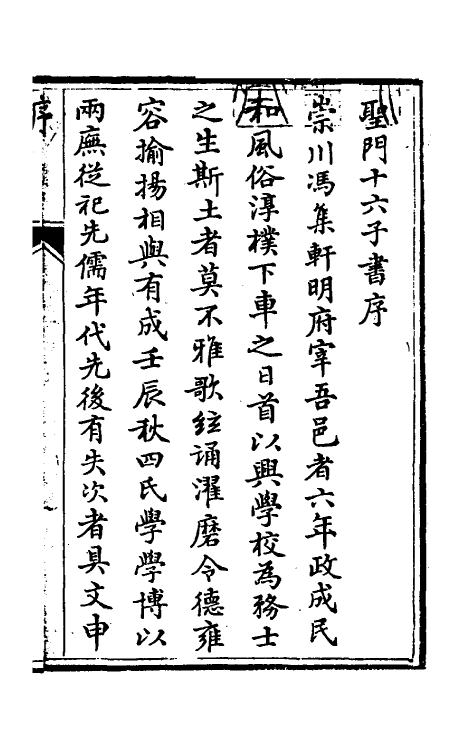 聖門十六子書序
崇川馮集軒明府宰吾邑者六年政成民
和風俗淳樸下車之日首以興學校為務士
之生斯土者莫不雅歌絃誦濯磨令德雍
容揄揚相與有成壬辰秋四氏學學博以
兩廡從祀先儒年代先後有失次者具文申
序